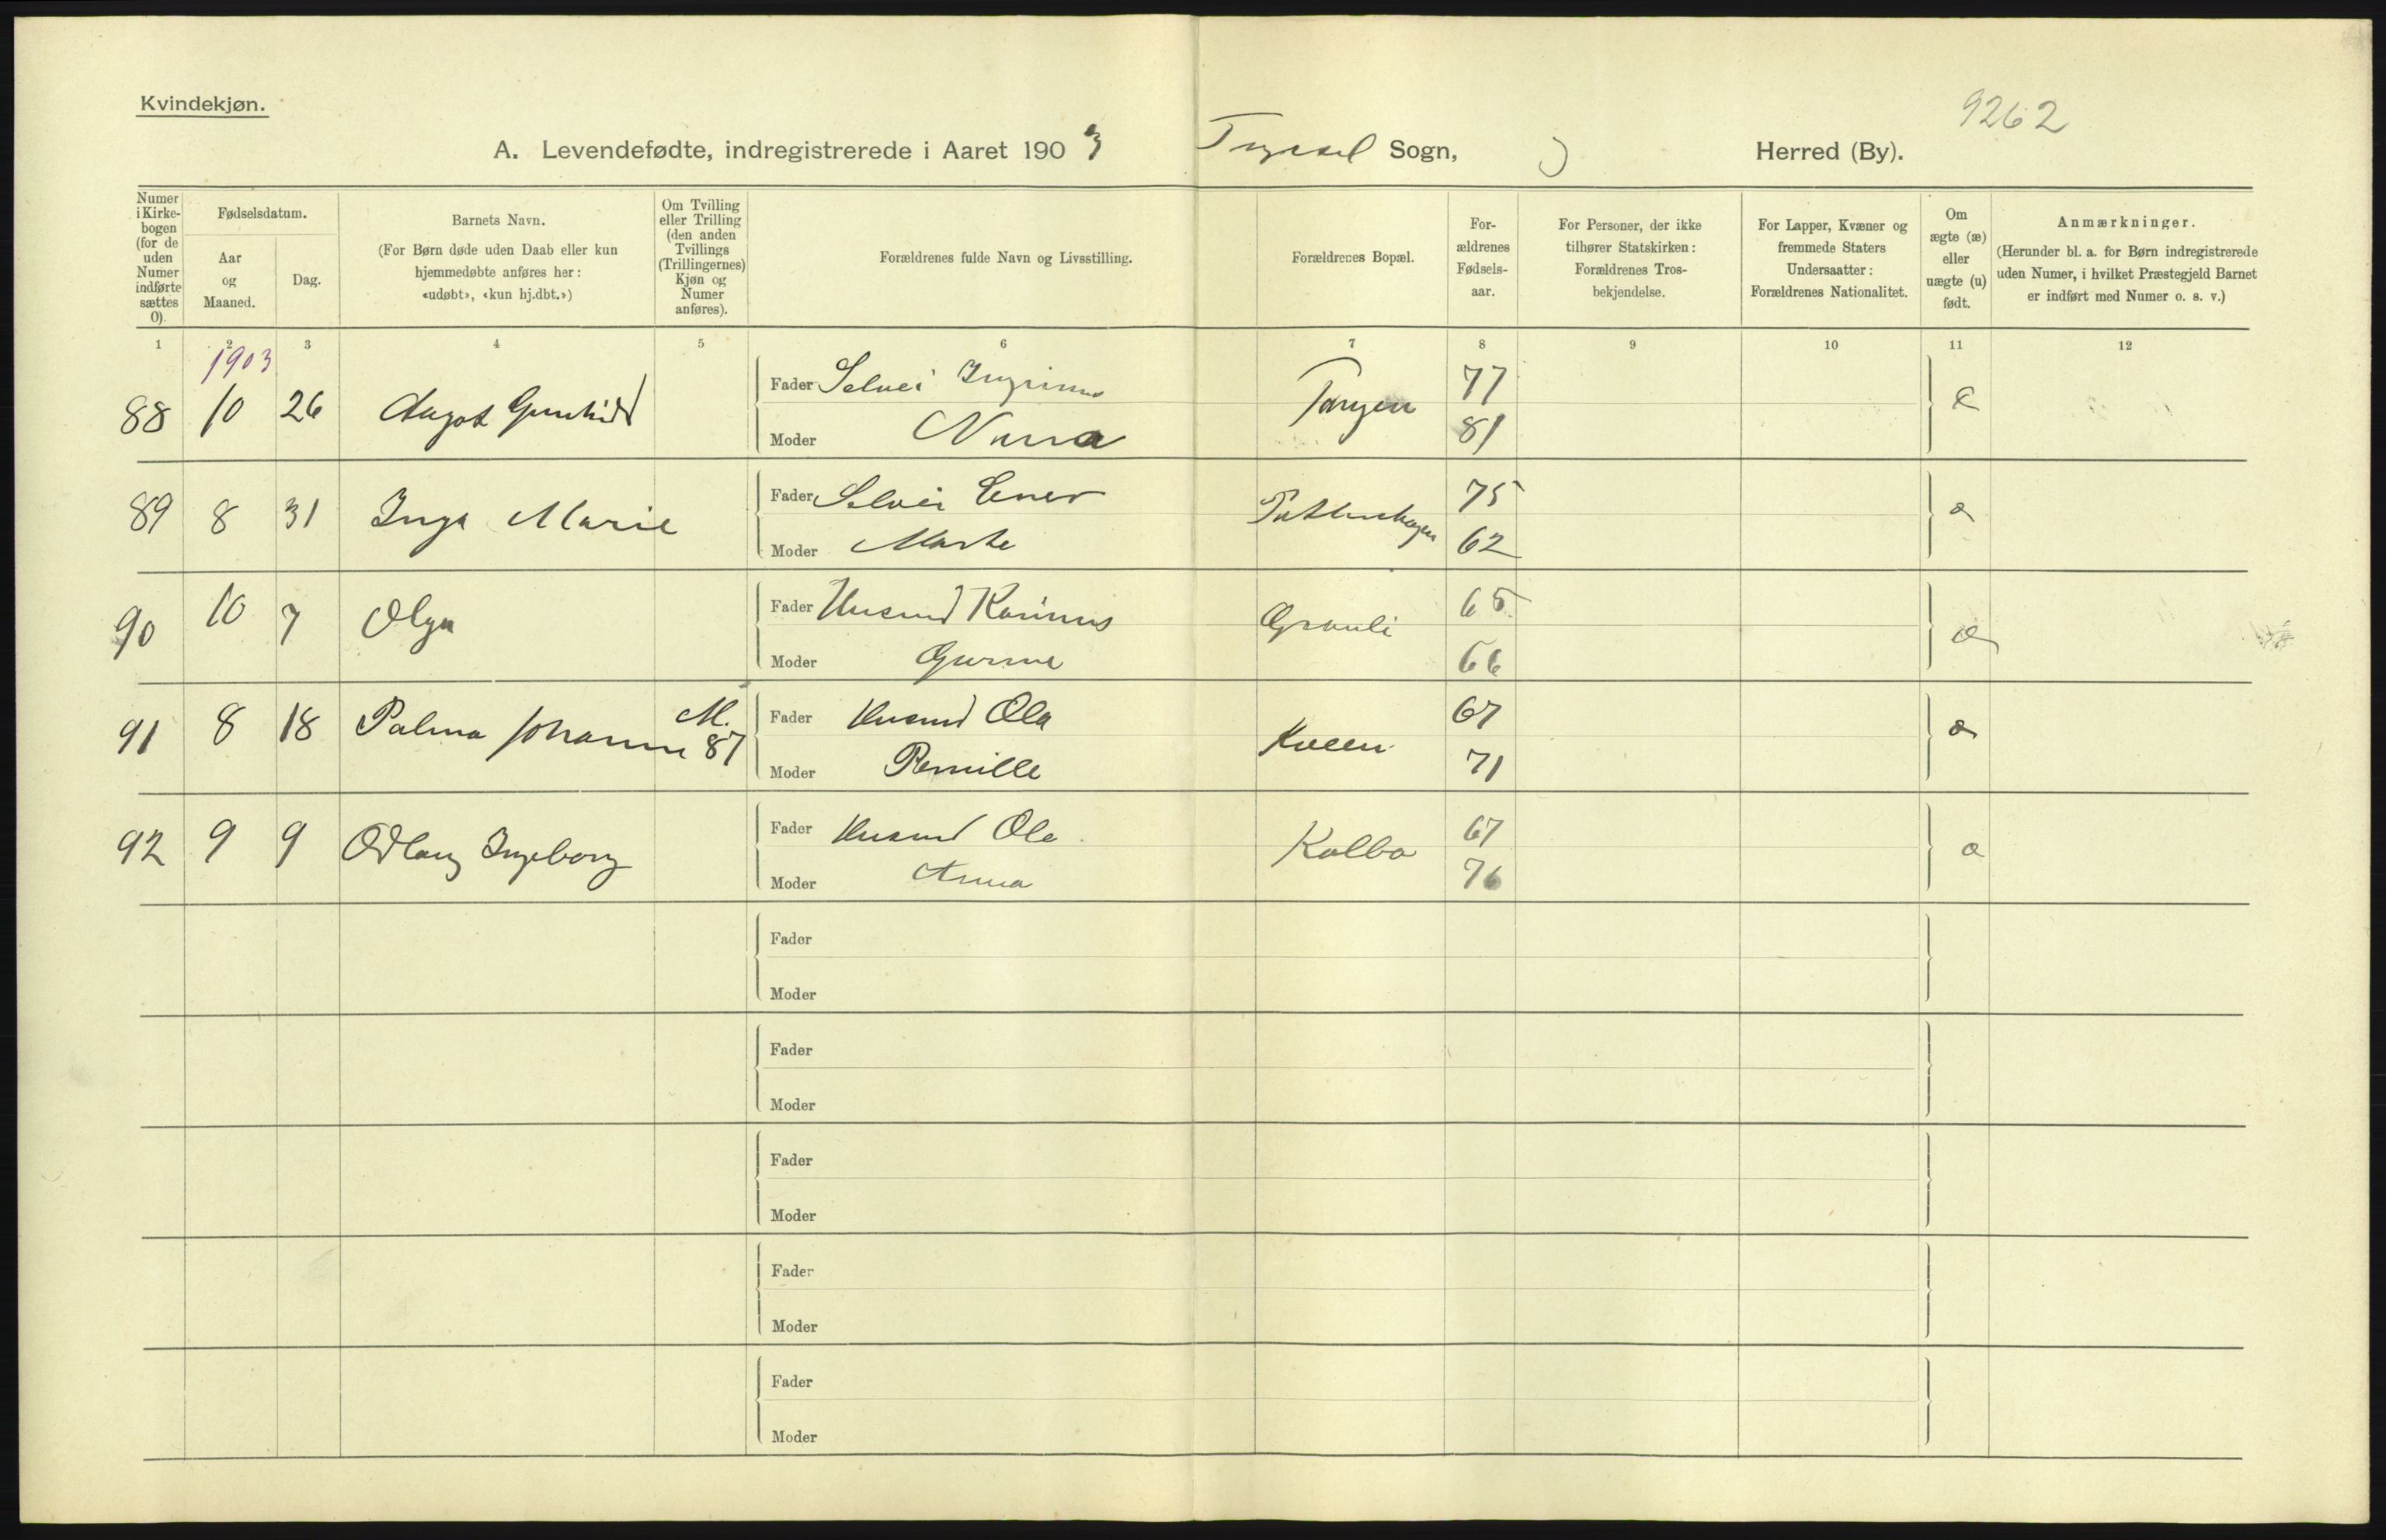 Kvindekjøn.
9262
A. Levendefødte, indregistrerede i Aaret 1903 Trysil Sogn, Herred (By).
Numer i Kirkebogen (for de uden Numer indførte sættes 0).
Fødselsdatum.
Aar og Maaned.
Dag.
Barnets Navn.
(For Børn døde uden Daab eller kun hjemmedøbte anføres her: «udøbt», «kun hj.dbt.»)
Om Tvilling eller Trilling (den anden Tvillings (Trillingernes) Kjøn og Numer anføres).
Forældrenes fulde Navn og Livsstilling.
Forældrenes Bopæl.
For-ældrenes Fødsels-aar.
For Personer, der ikke tilhører Statskirken: Forældrenes Tros-bekjendelse.
For Lapper, Kvæner og fremmede Staters Undersaatter: Forældrenes Nationalitet.
Om ægte (æ) eller uægte (u) født.
Anmærkninger.
(Herunder bl. a. for Børn indregistrerede uden Numer, i hvilket Præstegjeld Barnet er indført med Numer o. s. v.)
1 2 3 4 5 6 7 8 9 10 11 12
1903
88 10 26 Aagot Gunhild Fader 77 æ
Moder 81
89 8 31 Inga Marie Fader 75 æ
Moder Marte 62
90 10 7 Olga Fader Karinus Grønli 65 æ
Moder Gurine 66
91 8 18 Palma Johanne M. 87 Fader Ola 67 æ
Moder Pernille 71
92 9 9 Odlaug Ingeborg Fader Ole Kolbo 67 æ
Moder Anna 76
Fader
Moder
Fader
Moder
Fader
Moder
Fader
Moder
Fader
Moder